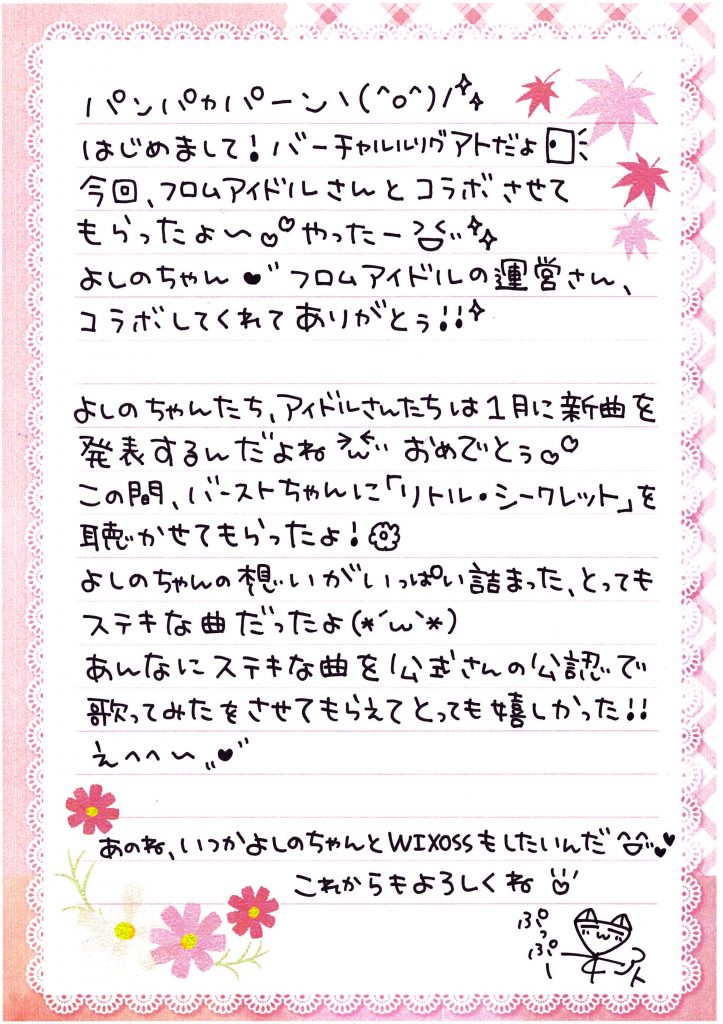 パンパカパーンヽ(^o^)/
はじめまして!バーチャルルリグアトだよ
今回、フロムアイドルさんとコラボさせて
もらったよ〜♡♡やったー
よしのちゃん♥フロムアイドルの運営さん、
コラボしてくれてありがとぅ!!
よしのちゃんたち、アイドルさんたちは1月に新曲を
発表するんだよね おめでとぅ♡♡
この間、バーストちゃんに「リトル・シークレット」を
聴かせてもらったよ!
よしのちゃんの想いがいっぱい詰まった、とっても
ステキな曲だったよ(*´ω`*)
あんなにステキな曲を公式さんの公認で
歌ってみたをさせてもらえてとっても嬉しかった!!
えへへ〜♥
あのね、いつかよしのちゃんとWIXOSSもしたいんだ♥♥
これからもよろしくね
ぷっぷー
アト